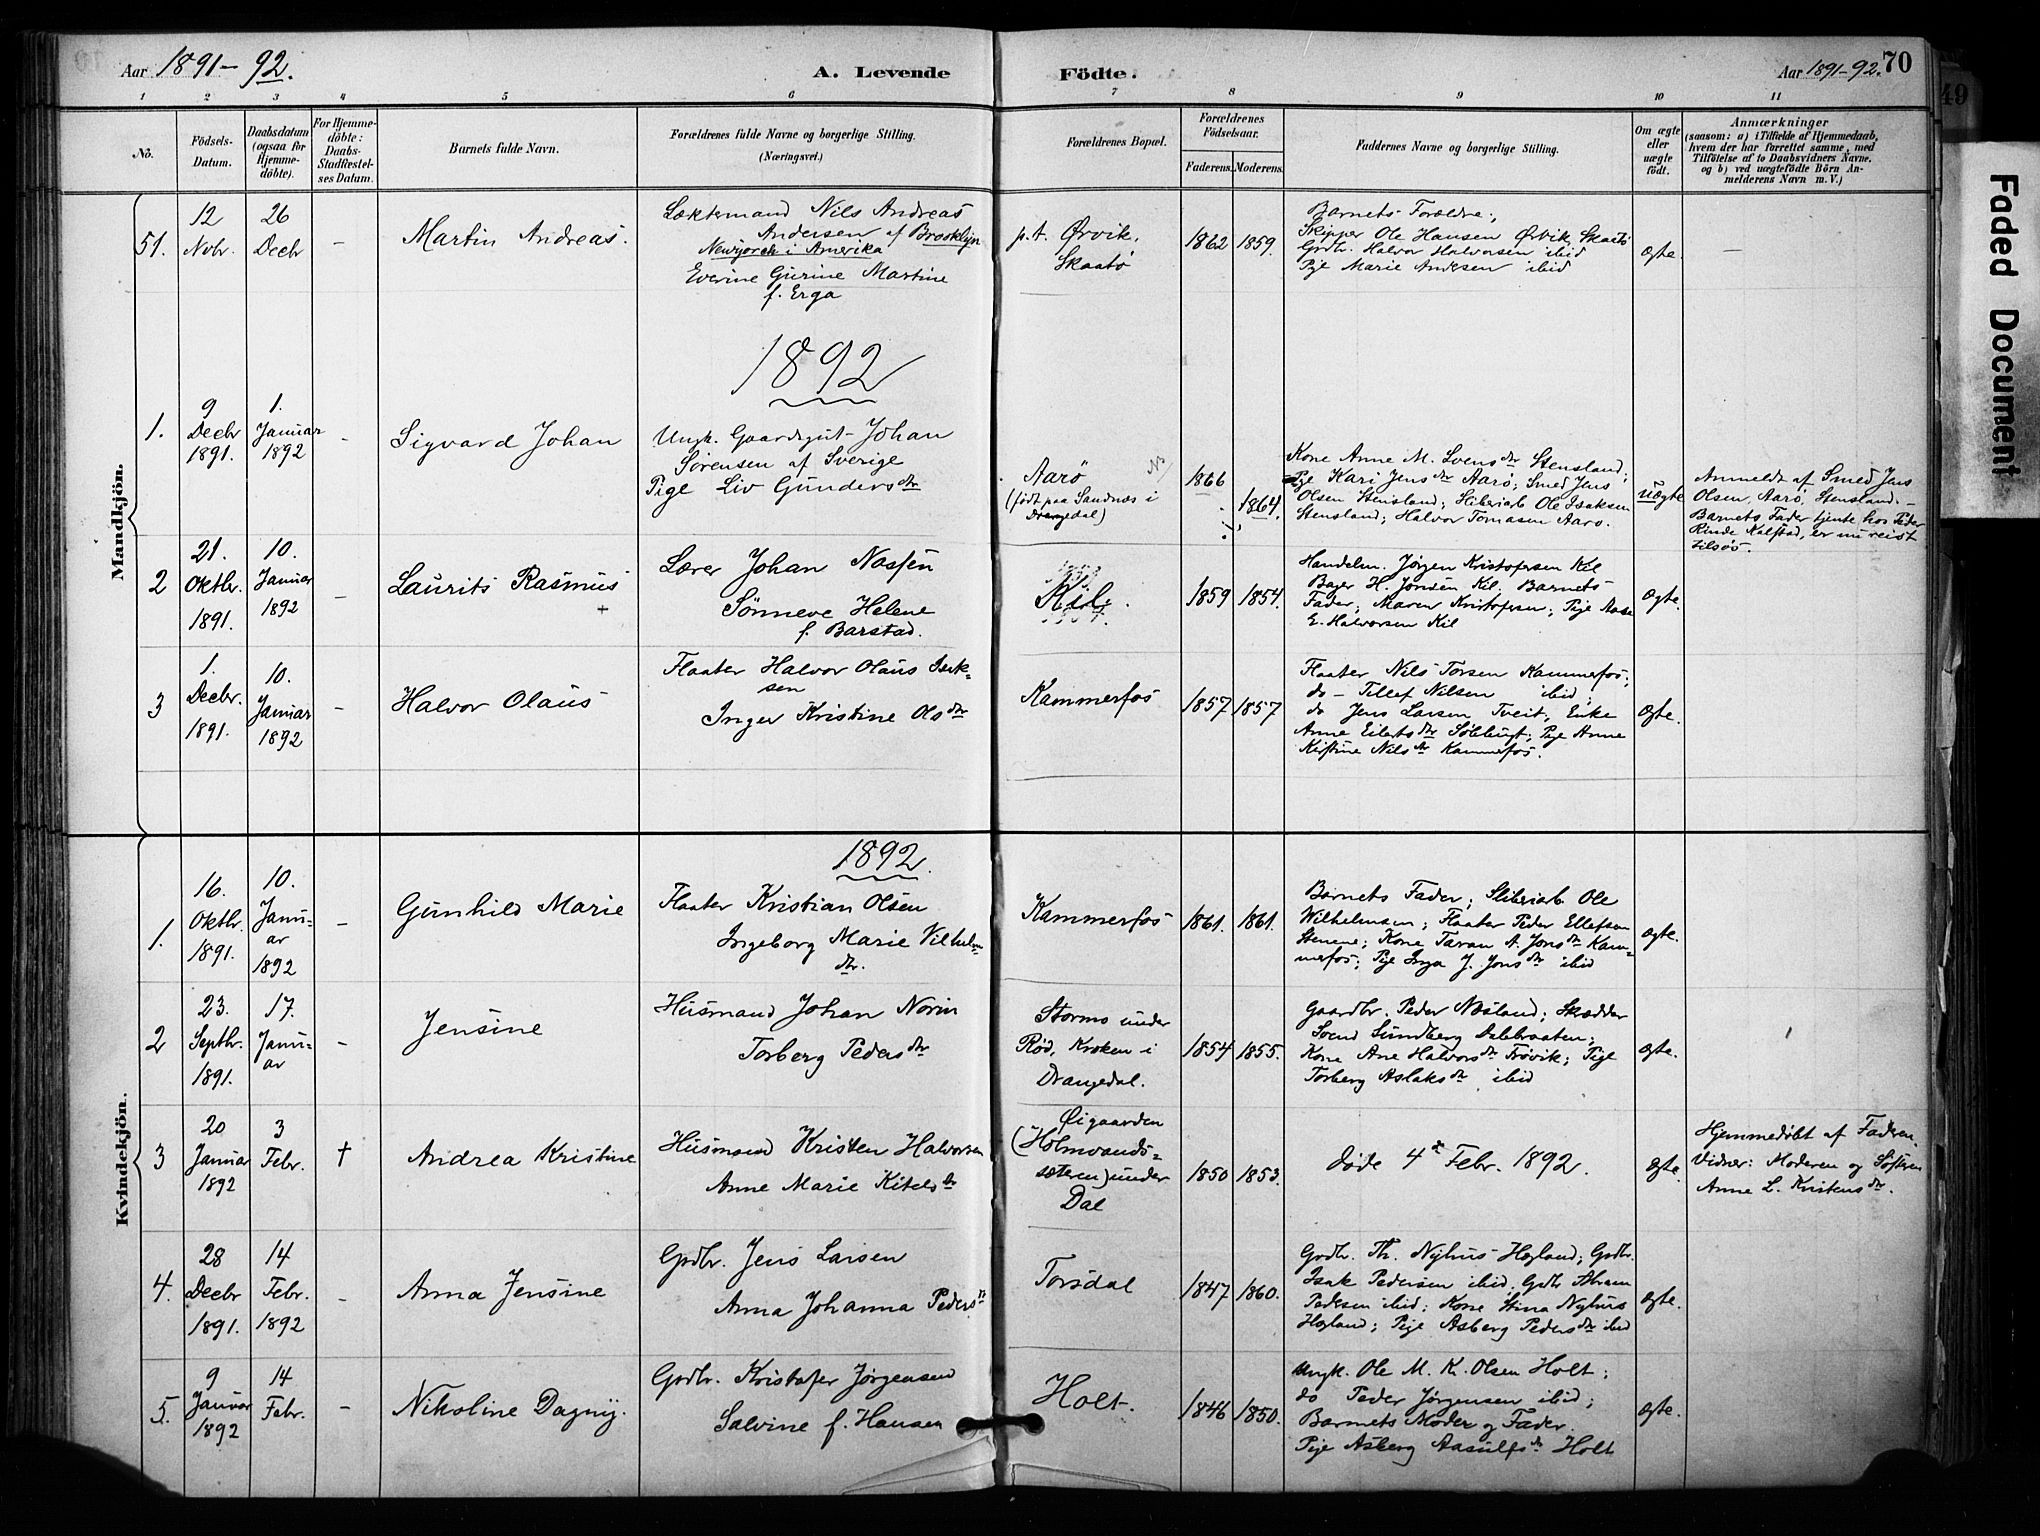 Aar 1891-92.
A. Levende Födte.
Aar 1891-92. 70
49
Faded Document
1 2 3 4 5 6 7 8 9 10 11
No.
Födsels-
Datum.
Daabsdatum
(ogsaa for
Hjemme-
döbte).
For Hjemme-
döbte:
Daabs-
Stadfæstel-
ses Datum.
Barnets fulde Navn.
Forældrenes fulde Navne og borgerlige Stilling.
(Næringsvei.)
Forældrenes Bopæl.
Forældrenes
Födselsaar.
Faderens. Moderens.
Faddernes Navne og borgerlige Stilling.
Om ægte
eller
uægte
födt.
Anmærkninger
(saasom: a) i Tilfælde af Hjemmedaab,
hvem der har forrettet samme, med
Tilföielse af to Daabsvidners Navne,
og b) ved uægtefödte Börn An-
melderens Navn m. V.)
Mandkjön.
51.
12
Novbr.
26
Decbr
-
Martin Andreas.
Nils Andreas
Andersen af Brooklyn
Newyorck i Amerika
Everine Gurine Martine
f. Erga
p.t. Ørvik,
Skaatø
1862 1859.
Barnets Forældre;
Skipper Ole Hansen Ørvik, Skaatø
Grdbr. Halvor Halvorsen ibid
Pige Marie Andersen ibid
Ægte.
-
1892
1.
9
Decbr
1891.
1.
Januar
1892
-
Sigvard Johan
Ungk. Gaardsgut Johan
Sørensen af Sverige
Pige Liv Gundersdtr
Aarø
(født paa Sandnæs i
Drangedal)
1866
1864.
Kone Anne M. Svensdtr Stensland;
Pige Kari Jensdtr Aarø; Smed Jens
Olsen Stensland; Sliberiarb Ole Isaksen
Stensland; Halvor Tomasen Aarø.
Uægte
Anmeldt af Smed Jens
Olsen, Aarø, Stensland.-
Barnets Fader tjente hos Peder
Rinde Kalstad, er nu reist
tilsøs.
2
21.
Oktbr.
1891.
10.
Januar
1892
-
Laurits Rasmus
+
Lærer Johan Nossen
Sönneve Helene
f. Barstad.
Kil.
1859 1854.
Handelm. Jörgen Kristofersen Kil
H. Jonsen Kil; Barnets
Fader; Maren Kristofersen; Pige Aase
E. Halvorsen Kil
Ægte.
3
1.
Decbr.
1891.
10.
Januar
1892
-
Halvor Olaus
Flaater Halvor Olaus Isak-
sen
Inger Kristine Olsdtr
Kammerfos
1857 1857
Flaater Nils Torsen Kammerfos;
do - Tellef Nilsen ibid;
do Jens Larsen Tveit; Enke
Anne Eilertsdtr Sölebugt; Pige Anne
Kirstine Nilsdtr Kammerfos.
Ægte.
Kvindekjön.
1892.
1.
16.
Oktbr.
1891.
10.
Janu-
ar
1892
-
Gunhild Marie
Flaater Kristian Olsen
Ingeborg Marie Vilhelm
dtr.
Kammerfos
1861. 1861.
Barnets Fader; Sliberiarb Ole
Wilhelmsen; Flaater Peder Ellefsen
Stenene; Kone Taran A. Jonsdtr Kam-
merfos; Pige Inga J. Jonsdtr ibid
Ægte.
2
23.
Septbr.
1891.
17.
Janu-
ar
-
Jensine
Husmand Johan Norin
Torberg Pedersdtr
Stormo under
Rød, Kroken i
Drangedal.
1854 1855.
Gaardbr. Peder Næsland; Skrædder
Svend Sundberg Dalebraaten;
Kone Ane Halvorsdtr Trövik; Pige
Torberg Aslaksdtr ibid
Ægte.
3
20
Januar
1892
3
Febr.
†
Andrea Kristine
Husmand Kristen Halvorsen
Anne Marie Kitelsdtr
Øigaarden
(Holmvands-
sæteren) under
Dal
1850 1853.
døde 4de Febr. 1892.
Ægte.
Hjemmedøbt af Faderen.
Vidner: Moderen og Søsteren
Anne L. Kristensdtr.
4.
28
Decbr
1891.
14
Febr.
1892
-
Anna Jensine
Grdbr. Jens Larsen
Anna Johanna Pedersdtr
Torsdal
1847 1860.
Grdbr. Th. Nyhus Hegland; Grdbr.
Isak Pedersen ibid; Grdbr Abram
Pedersen ibid; Kone Stina Nyhus
Hegland; Pige Asberg Pedersdtr ibid
Ægte.
5.
9
Januar
1892
14
Febr.
-
Nikoline Dagny.
Grdbr. Kristofer Jörgensen
Salvine f. Hansen
Holt.
1846 1850.
Ungk. Ole M. K. Olsen Holt;
do Peder Jørgensen ibid;
Barnets Moder og Fader
Pige Asberg Aasulfsdtr Holt
Ægte.